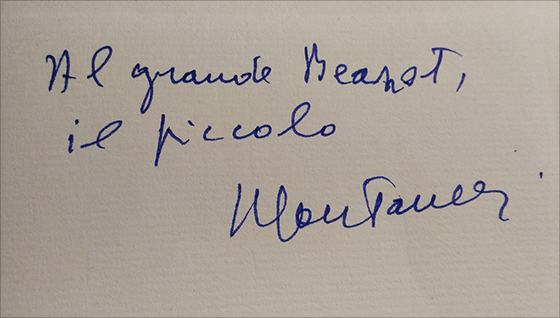 Al grande Bearzot,
il piccolo
Montanelli